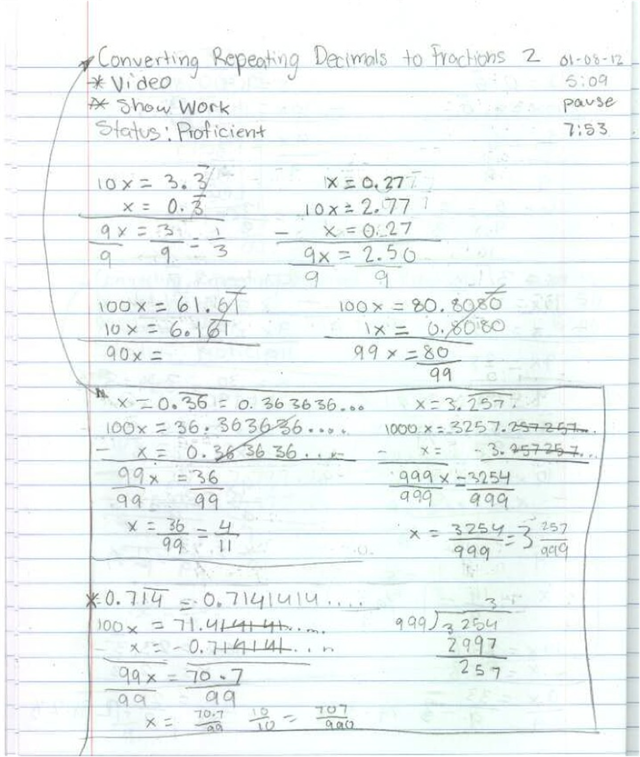 Converting Repeating Decimals to Fractions 2
01-08-12
* Video
5:09
* Show Work
pause
Status: Proficient
7:53
10x = 3.3̅
x = 0.3̅
9x = 3 = 1
9 9 3
x = 0.27
10x = 2.77
- x = 0.27
9x = 2.50
9 9
100x = 61.61̅
10x = 6.161̅
90x =
100x = 80.8080
1x = 0.8080
99x = 80
99
x = 0.3̅6̅ = 0.363636...
100x = 36.363636....
- x = 0.363636....
99x = 36
99 99
x = 36 = 4
99 11
x = 3.2̅5̅7̅
1000x = 3257.257257...
- x = - 3.257257...
999x = 3254
999 999
x = 3254 = 3 257
999 999
* 0.71̅4̅ = 0.7141414....
100x = 71.414141....
- x = - 0.714141...
99x = 70.7
99 99
x = 70.7 10 = 707
99 10 990
3
999)3254
2997
257